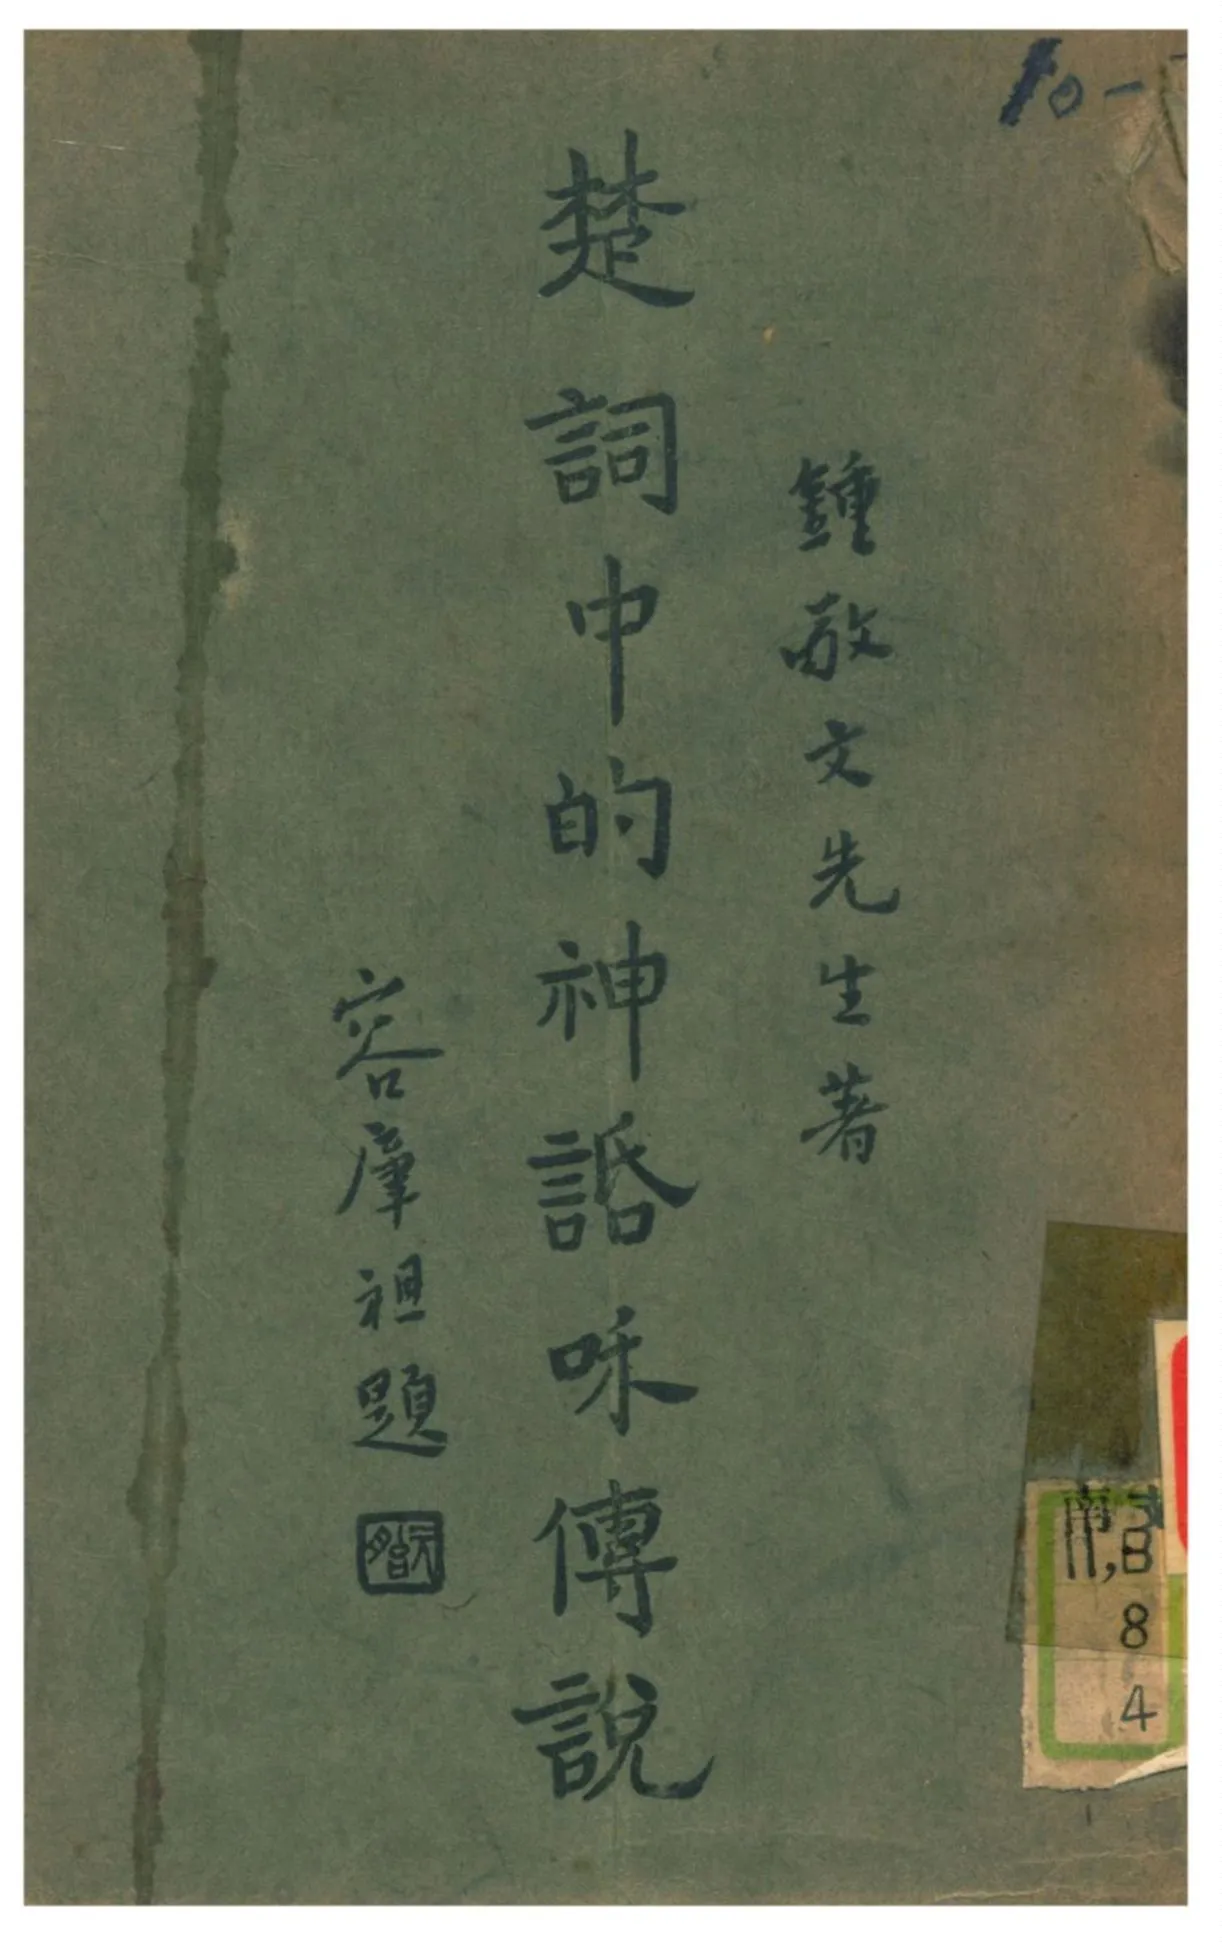 10-
鍾敬文先生著
楚詞中的神話咊傳說
容肇祖題
南
8
4